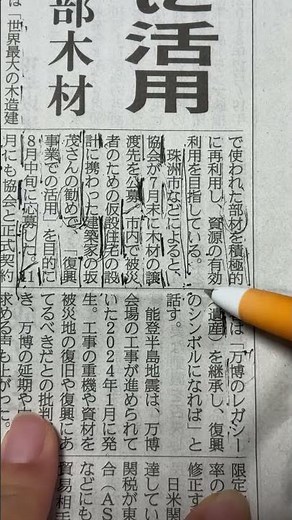 に活用
部木材
は「世界最大の木造建
で使われた部材を積極的
に再利用し、資源の有効
利用を目指している。
珠洲市などによると、
協会が月末に木材の譲
渡先を公募。市内で被災
者のための仮設住宅の設
計に携わった建築家の坂
茂さんの勧めで、「復興
事業での活用」を目的に
8月中旬に応募した。
月にも協会と正式契約
は「万博のレガシー
(遺産)を継承し、復興
のシンボルになれば」と
話す。
能登半島地震は、万博
会場の工事が進められて
いた2024年1月に発
生。工事の重機や資材を
被災地の復旧や復興にあ
てるべきだとの批判
き、万博の延期や
求める声も上がった。
限定
率の
修正す
日米関
達してい
関税が東
合(AS
などにも
貿易相手